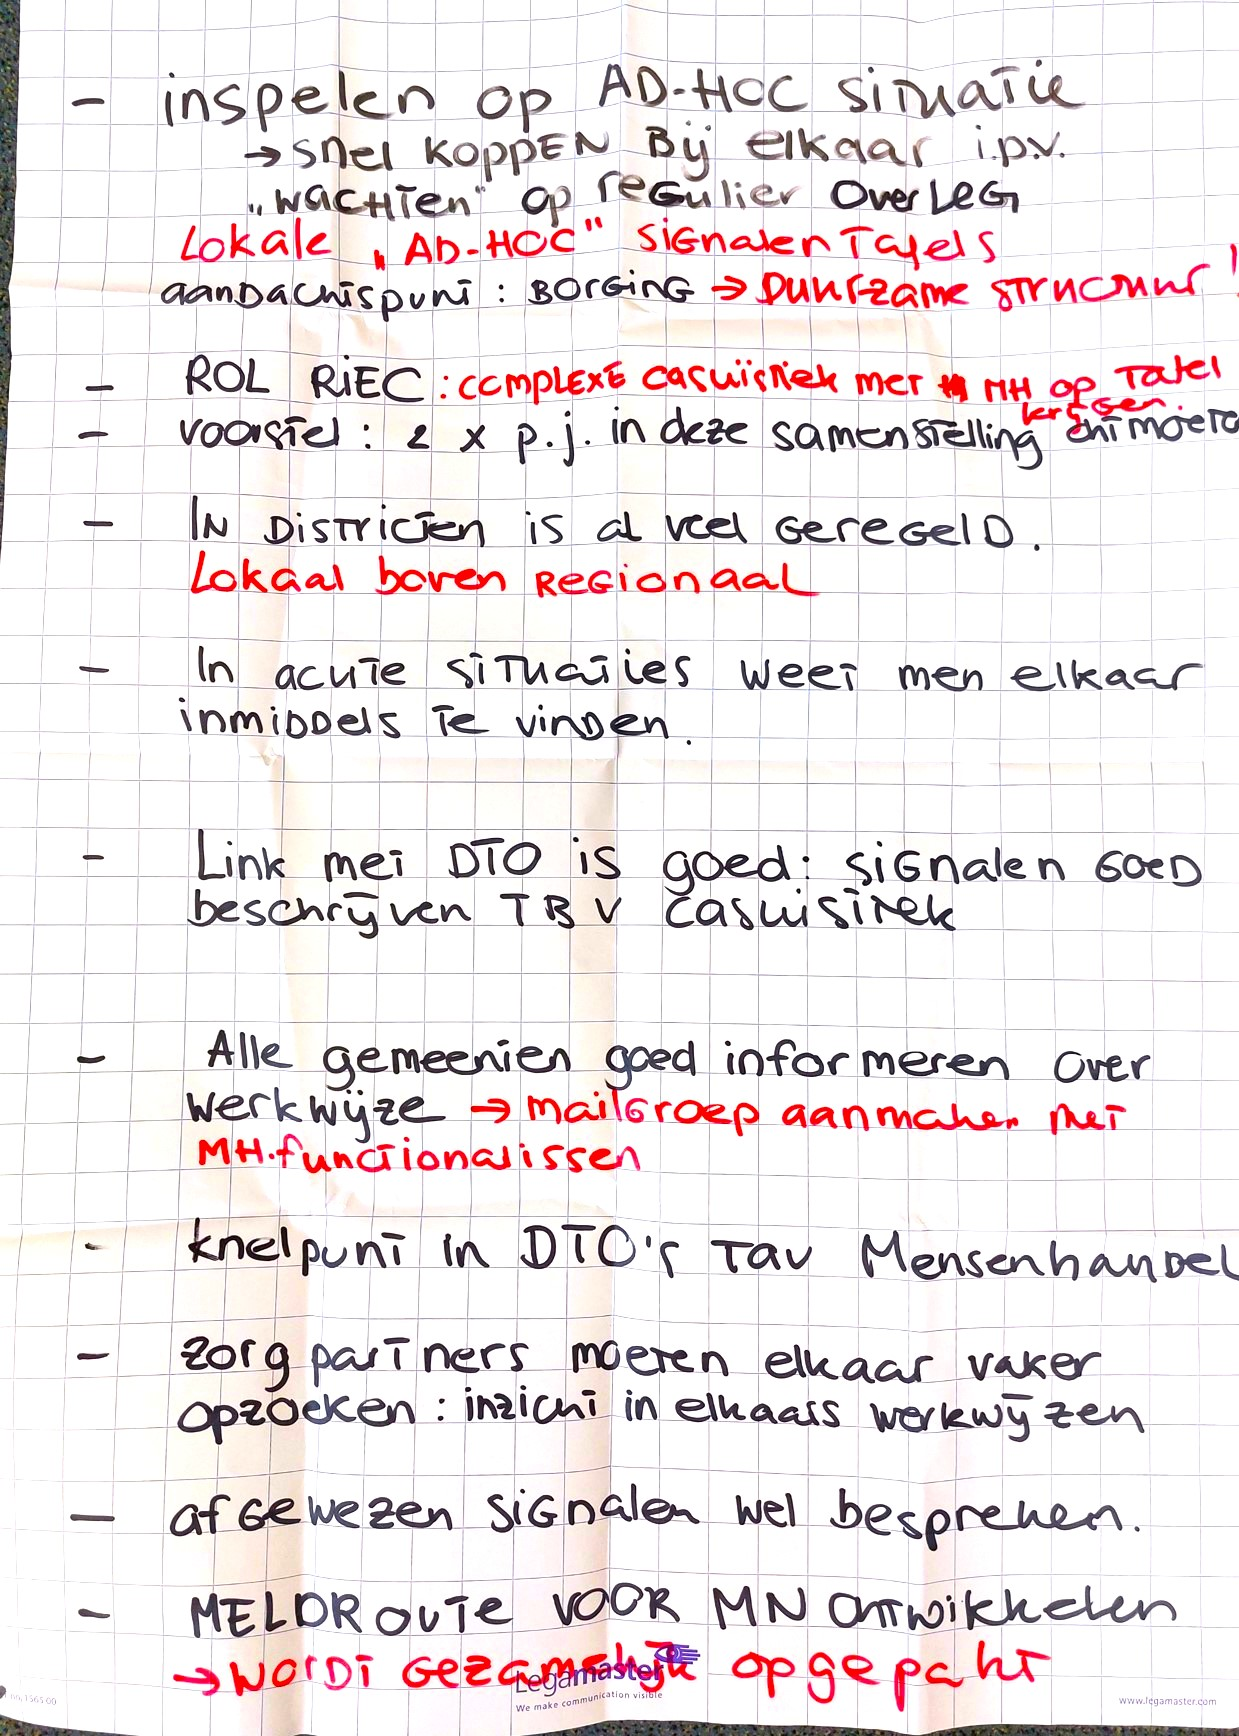 - inspelen op AD-HOC situatie
→ snel koppen bij elkaar i.p.v.
„wachten" op regulier overleg
Lokale „AD-HOC" signalen tafels
aandachtspunt : BORGING → Duurzame structuur !
- ROL RIEC : complexe casuïstiek met MH op tafel
krijgen.
- voorstel : 2 x p.j. in deze samenstelling
- In Districten is al veel geregeld.
Lokaal boven Regionaal
- In acute situaties weet men elkaar
inmiddels te vinden.
- Link met DTO is goed : signalen goed
beschrijven TBV casuistiek
- Alle gemeenten goed informeren over
werkwijze → mailgroep aanmaken met
MH.functionalissen
- knelpunt in DTO's tav Mensenhandel
- zorgpartners moeten elkaar vaker
opzoeken : inzicht in elkaars werkwijzen
- afgewezen signalen wel bespreken.
- MELDROUTE VOOR MN ontwikkelen
→ wordt gezamenlijk opgepakt
Legamaster
We make communication visible
www.legamaster.com